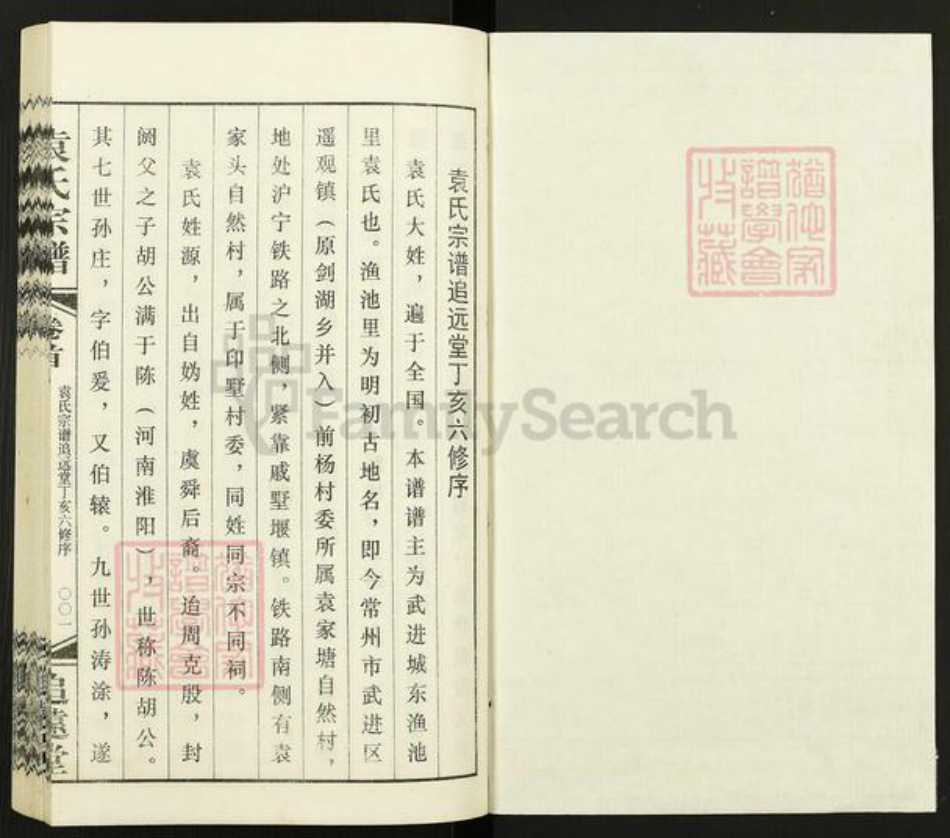 袁氏宗谱追远堂丁亥六修序
袁氏大姓，遍于全国。本谱谱主为武进城东渔池
里袁氏也。渔池里为明初古地名，即今常州市武进区
遥观镇（原剑湖乡并入）前杨村委所属袁家塘自然村，
地处沪宁铁路之北侧，紧靠戚墅堰镇。铁路南侧有袁
家头自然村，属于印墅村委，同姓同宗不同祠。
袁氏姓源，出自妫姓，虞舜后裔。迨周克殷，封
阏父之子胡公满于陈（河南淮阳），世称陈胡公。
其七世孙庄，字伯爰，又伯辕。九世孙涛涂，遂
袁氏宗譜
卷首
袁氏宗谱追远堂丁亥六修序
〇〇一
追遠堂
猶他家
譜學會
收藏
猶他家
譜學會
收藏
FamilySearch